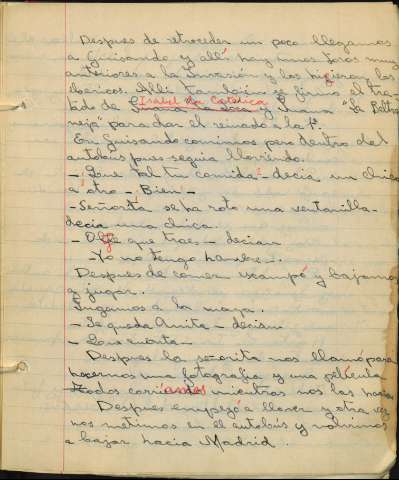 Despues de retroceder un poco llegamos
a Guisando y allí hay unos toros muy
anteriores a la Invasión y los hicieron los
ibericos. Allí tambien se firmo el tra-
tado de Isabel la Católica y Juana "la Beltra
neja" para dar el reinado a la 1ª.
En Guisando comimos pero dentro del
autobus pues seguia lloviendo.
- Que tal tu comida - decia un chico
a otro - Bien -
- Señorita se ha roto una ventanilla -
decia una chica.
- que traes - decian
- Yo no tengo hambre -.
Despues de comer escampó y bajamos
a jugar.
Jugamos a la maya.
- Se queda Anita - decian
- Los cuarta -
Despues la señorita nos llamó para
hacernos una fotografia y una película
Todos corriamos mientras nos las hacia
Despues empezó a llover y otra vez
nos metimos en el autobús y volvimos
a bajar hacia Madrid.